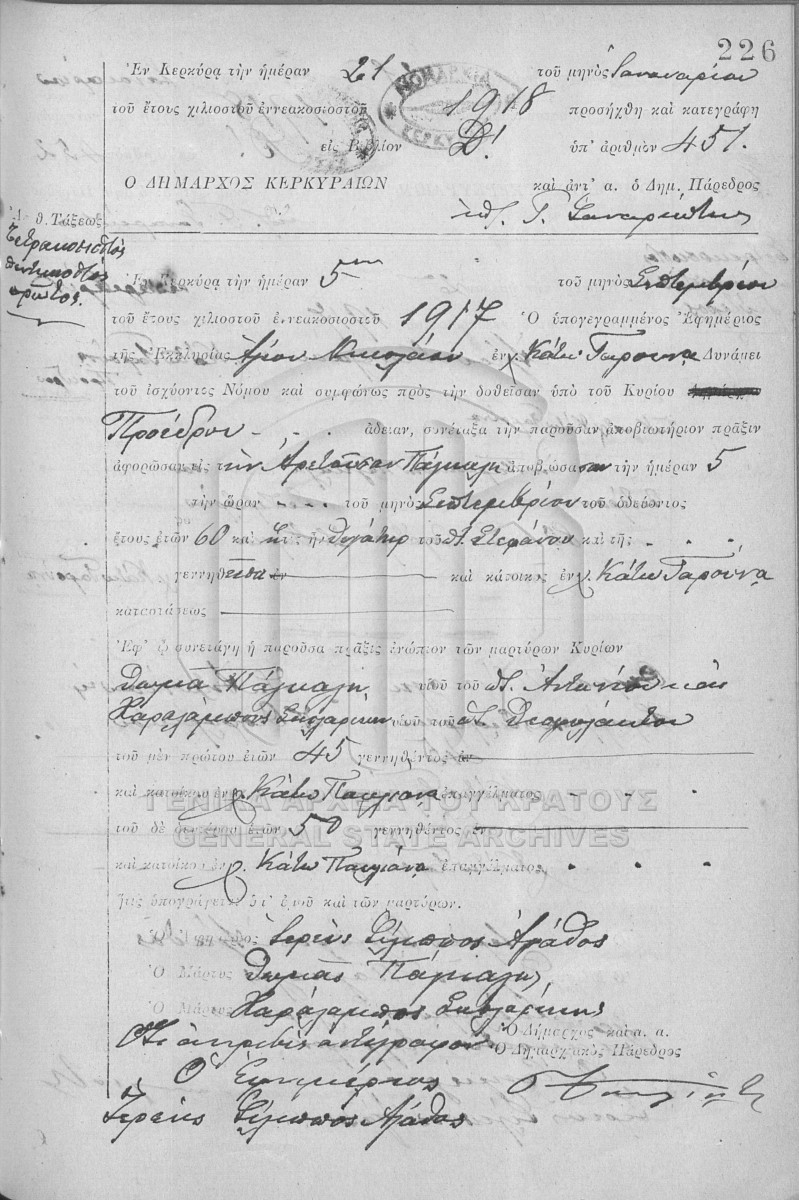 226
Ἐν Κερκύρᾳ τὴν ἡμέραν 21 τοῦ μηνὸς Ἰανουαρίου
τοῦ ἔτους χιλιοστοῦ ἐννεακοσιοστοῦ 1918 προσήχθη καὶ κατεγράφη
ΝΟΜΑΡΧΙΑ ΚΕΡΚΥΡΑΣ
εἰς Βιβλίον Δ! ὑπ' ἀριθμὸν 451.
Ο ΔΗΜΑΡΧΟΣ ΚΕΡΚΥΡΑΙΩΝ καὶ ἀντ' α. ὁ Δημ. Πάρεδρος
Γ.
Ἀριθ. Τάξεως
Τετρακοσιοστὸς
πεντηκοστὸς
πρῶτος.
Ἐν Κερκύρᾳ τὴν ἡμέραν 5ην τοῦ μηνὸς Σεπτεμβρίου
τοῦ ἔτους χιλιοστοῦ ἐννεακοσιοστοῦ 1917 Ὁ ὑπογεγραμμένος Ἐφημέριος
τῆς Ἐκκλησίας Ἁγίου Νικολάου ἐν χ. Κάτω Γαρούνα Δυνάμει
τοῦ ἰσχύοντος Νόμου καὶ συμφώνως πρὸς τὴν δοθεῖσαν ὑπὸ τοῦ Κυρίου
Προέδρου - - ἄδειαν, συνέταξα τὴν παροῦσαν ἀποβιωτήριον πρᾶξιν
ἀφορῶσαν εἰς τὴν Ἀρετοῦσαν Πάγκαλη ἀποβιώσασαν τὴν ἡμέραν 5
τὴν ὥραν - - - - τοῦ μηνὸς Σεπτεμβρίου τοῦ ὁδεύοντος
ἔτους ἐτῶν 60 καὶ ἥτις ἦν θυγάτηρ τοῦ π. Στεφάνου καὶ τῆς - - -
γεννηθεῖσα ἐν καὶ κάτοικος ἐν χ. Κάτω Γαρούνα
καταστάσεως
Ἐφ' ᾧ συνετάγη ἡ παροῦσα πρᾶξις ἐνώπιον τῶν μαρτύρων Κυρίων
Θωμᾶ Πάγκαλη υἱοῦ τοῦ π. Ἀντωνίου καὶ
Χαραλάμπους υἱοῦ τοῦ π. Θεοφυλάκτου
τοῦ μὲν πρώτου ἐτῶν 45 γεννηθέντος ἐν
καὶ κατοίκου ἐν χ. Κάτω Παυλιάνα ἐπαγγέλματος - - -
ΓΕΝΙΚΑ ΑΡΧΕΙΑ ΤΟΥ ΚΡΑΤΟΥΣ
τοῦ δὲ δευτέρου ἐτῶν 50 γεννηθέντος ἐν
GENERAL STATE ARCHIVES
καὶ κατοίκου ἐν χ. Κάτω Παυλιάνα ἐπαγγέλματος - - -
ἥτις ὑπογράφεται ὑπ' ἐμοῦ καὶ τῶν μαρτύρων.
Ὁ Ἐφημέριος Ἱερεὺς Φίλιππος Ἀγάθος
Ὁ Μάρτυς Θωμᾶς Πάγκαλης
Ὁ Μάρτυς Χαράλαμπος
Ὅτι ἀκριβὲς ἀντίγραφον
Ὁ Δήμαρχος καὶ α. α.
Ὁ Δημαρχιακὸς Πάρεδρος
Ὁ Ἐφημέριος
Ἱερεὺς Φίλιππος Ἀγάθος